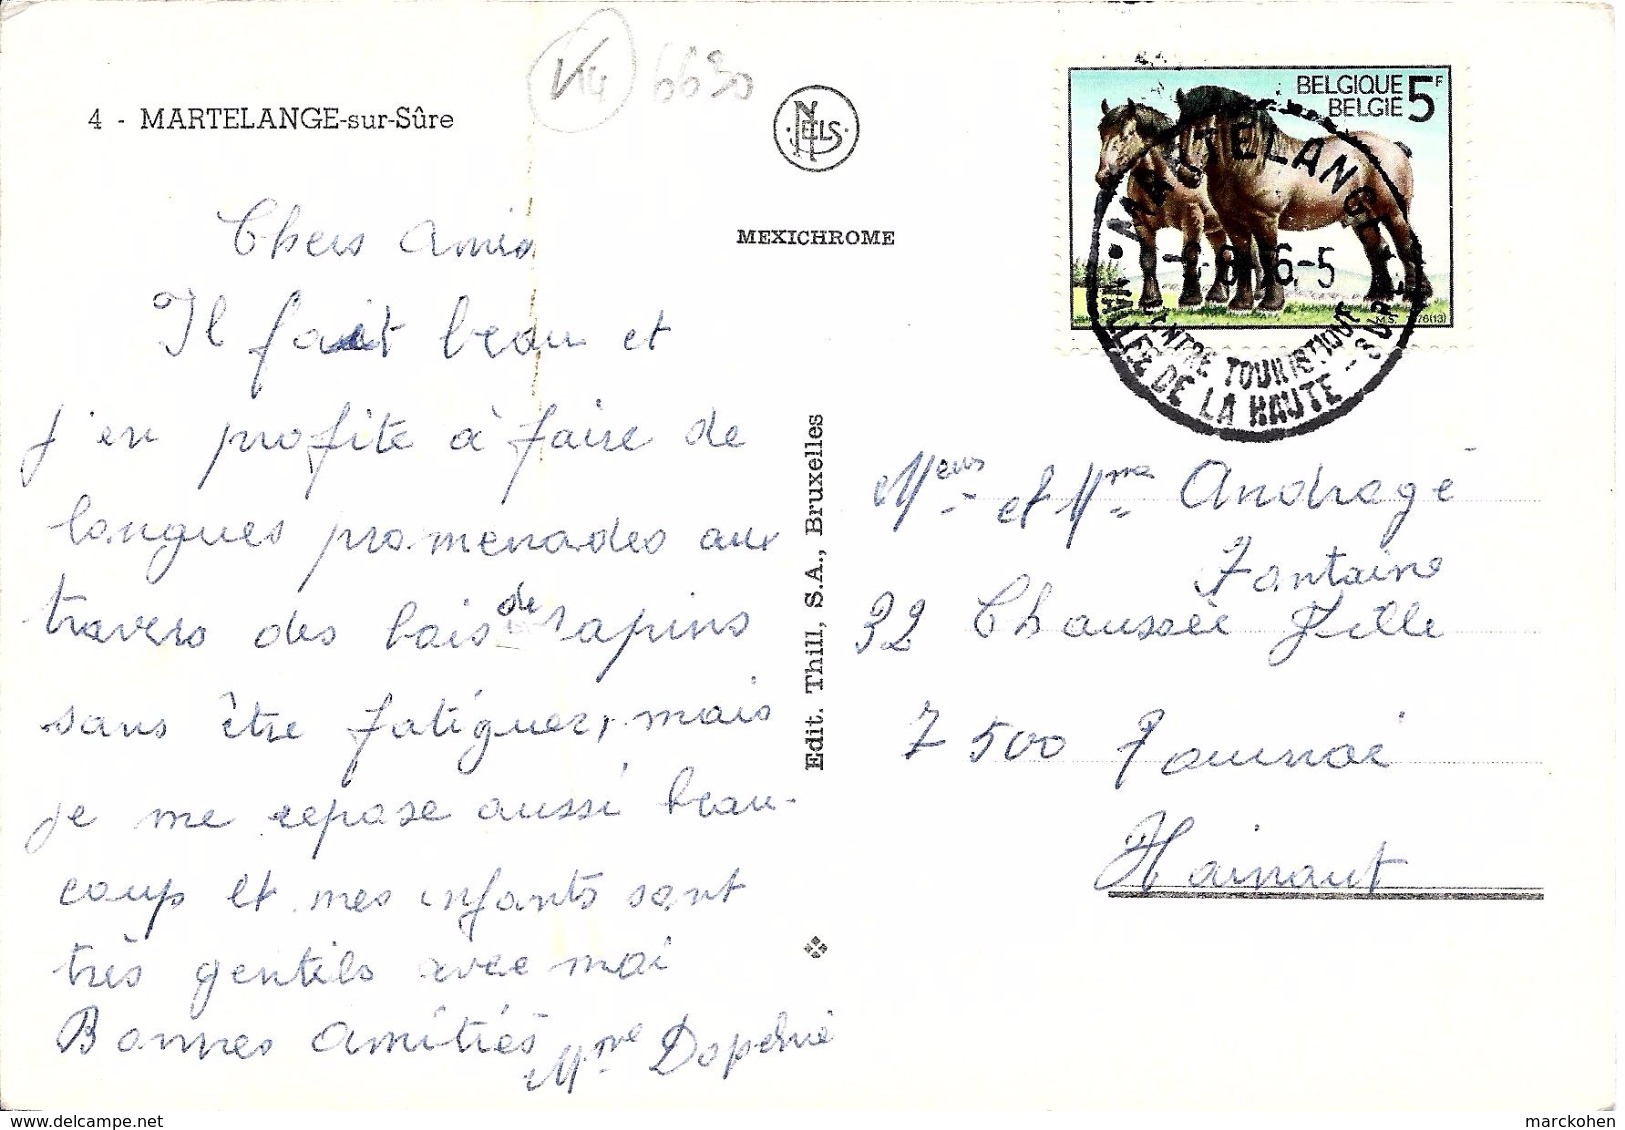 V14 6630
4 - MARTELANGE-sur-Sûre
NELS
MEXICHROME
BELGIQUE 5F
BELGIE
M.S. 1976(13)
MARTELANGE
6-5
CENTRE TOURISTIQUE
VALLEE DE LA HAUTE - SURE
Chers Amis
Il fait beau et
j'en profite à faire de
longues promenades aux
travers des bois de sapins
sans être fatiguer, mais
je me repose aussi beau-
coup et mes enfants sont
très gentils avec moi
Bonnes Amitiés
Mme
Edit. Thill, S.A., Bruxelles
Meur et Mme Andragé
Fontaine
32 Chaussée
7500 Tournai
Hainaut
delcampe.net
marckohen